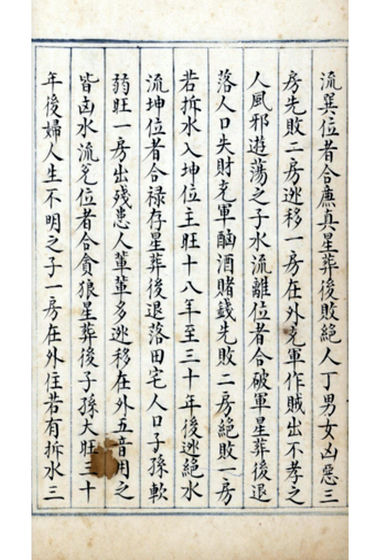 流巽位者合廉真星葬後敗絕人丁男女凶惡三
房先敗二房迯移一房在外充軍作賊出不孝之
人風邪遊蕩之子水流離位者合破軍星葬後退
落人口失財充軍酗酒賭錢先敗二房絕敗一房
若拆水入坤位主旺十八年至三十年後迯絕水
流坤位者合禄存星葬後退落田宅人口子孫軟
弱旺一房出殘患人輩輩多迯移在外五音用之
皆凶水流兊位者合貪狼星葬後子孫大旺三十
年後婦人生不明之子一房在外住若有拆水三